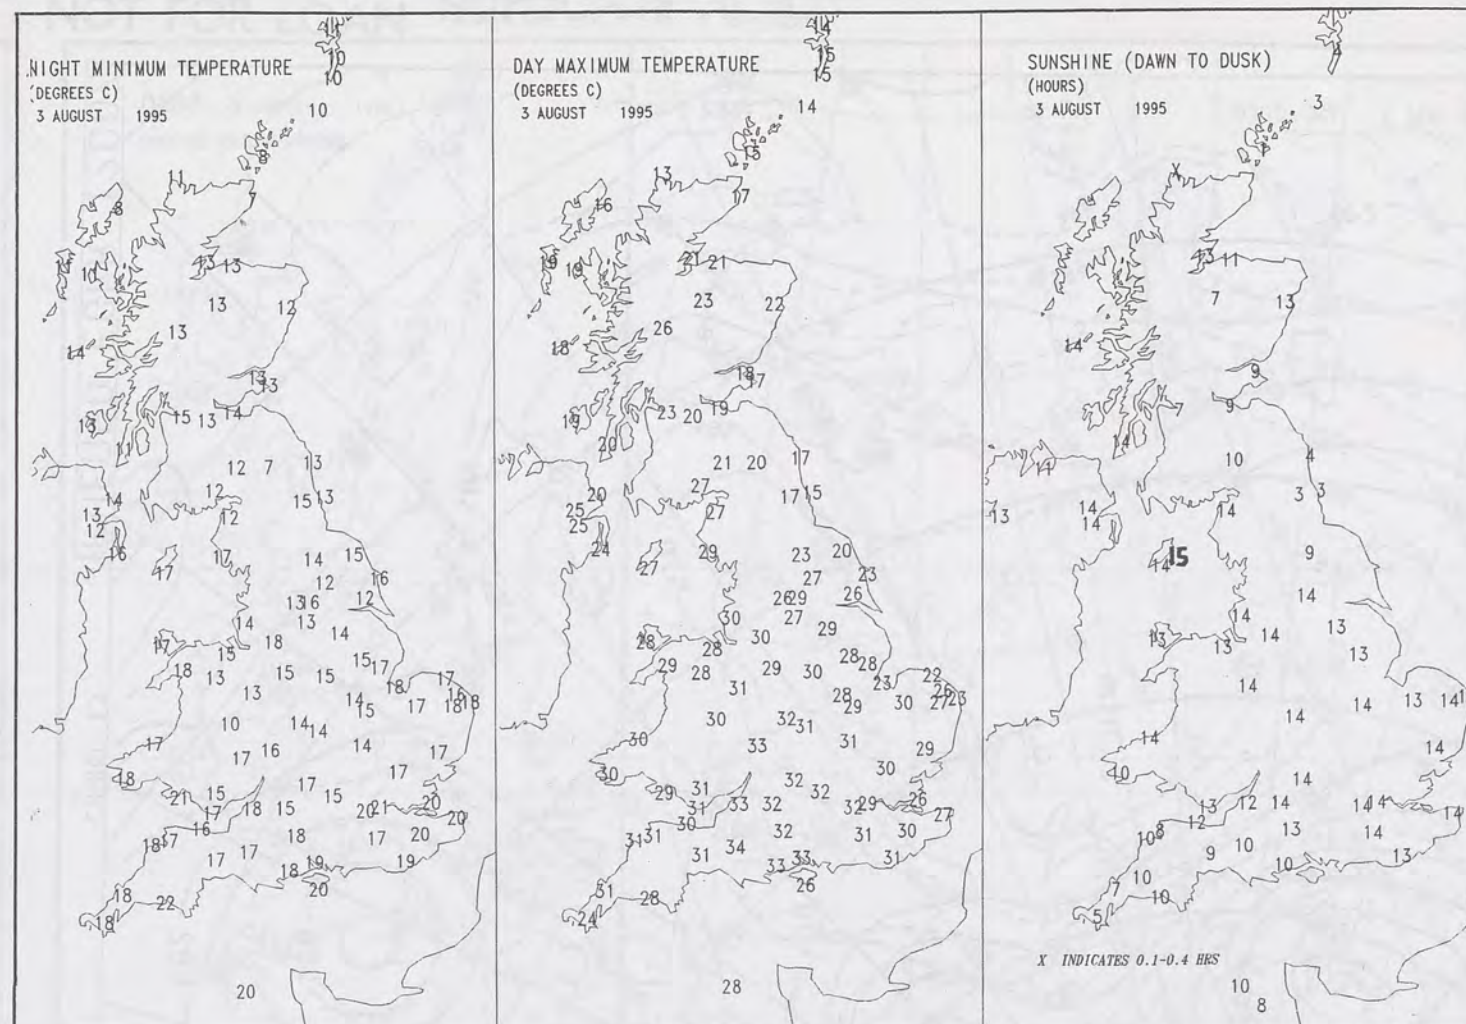 NIGHT MINIMUM TEMPERATURE
(DEGREES C)
3 AUGUST 1995
10
10
10
8
11
7
8
10
13
13
13
12
13
14
13
13
15
13
14
13
11
12
7
13
12
14
15
13
13
12
12
16
17
14
15
17
12
16
12
13
16
13
14
18
14
17
15
18
13
15
15
15
17
18
17
13
14
15
17
16
18
18
10
14
14
17
17
16
14
17
18
17
17
21
15
17
18
15
15
20
21
20
20
16
18
17
18
17
20
17
17
18
19
19
20
18
22
18
20
DAY MAXIMUM TEMPERATURE
(DEGREES C)
3 AUGUST 1995
14
15
15
14
15
13
17
16
19
19
21
21
23
22
26
18
18
17
19
23
20
19
20
21
20
17
20
27
17
15
25
25
27
24
29
27
23
20
27
23
26
29
26
27
30
30
29
28
28
29
28
29
30
28
28
31
28
29
23
30
22
26
27
23
30
32
31
30
33
31
29
30
30
29
31
31
33
32
32
32
32
29
26
27
30
31
31
32
31
30
34
31
33
33
31
26
31
28
24
28
SUNSHINE (DAWN TO DUSK)
(HOURS)
3 AUGUST 1995
4
3
X
13
11
7
13
14
9
9
7
14
10
4
14
3
3
13
14
14
14
15
14
9
14
14
14
13
13
13
13
14
14
14
13
14
14
14
10
14
13
12
14
14
14
14
12
8
10
13
14
9
10
13
10
10
7
10
5
X INDICATES 0.1-0.4 HRS
10
8